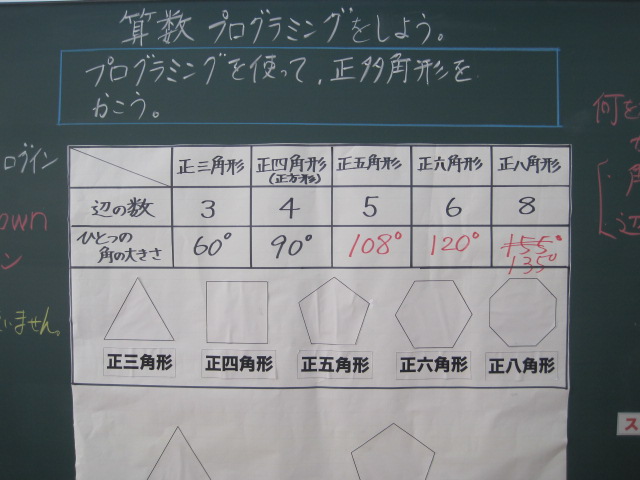 算数 プログラミングをしよう。
プログラミングを使って、正多角形を
かこう。
ログイン
own
ン
いません。
何を
角
辺
正三角形 正四角形 正五角形 正六角形 正八角形
(正方形)
辺の数 3 4 5 6 8
ひとつの
角の大きさ 60° 90° 108° 120° 155°
135°
正三角形 正四角形 正五角形 正六角形 正八角形
ス